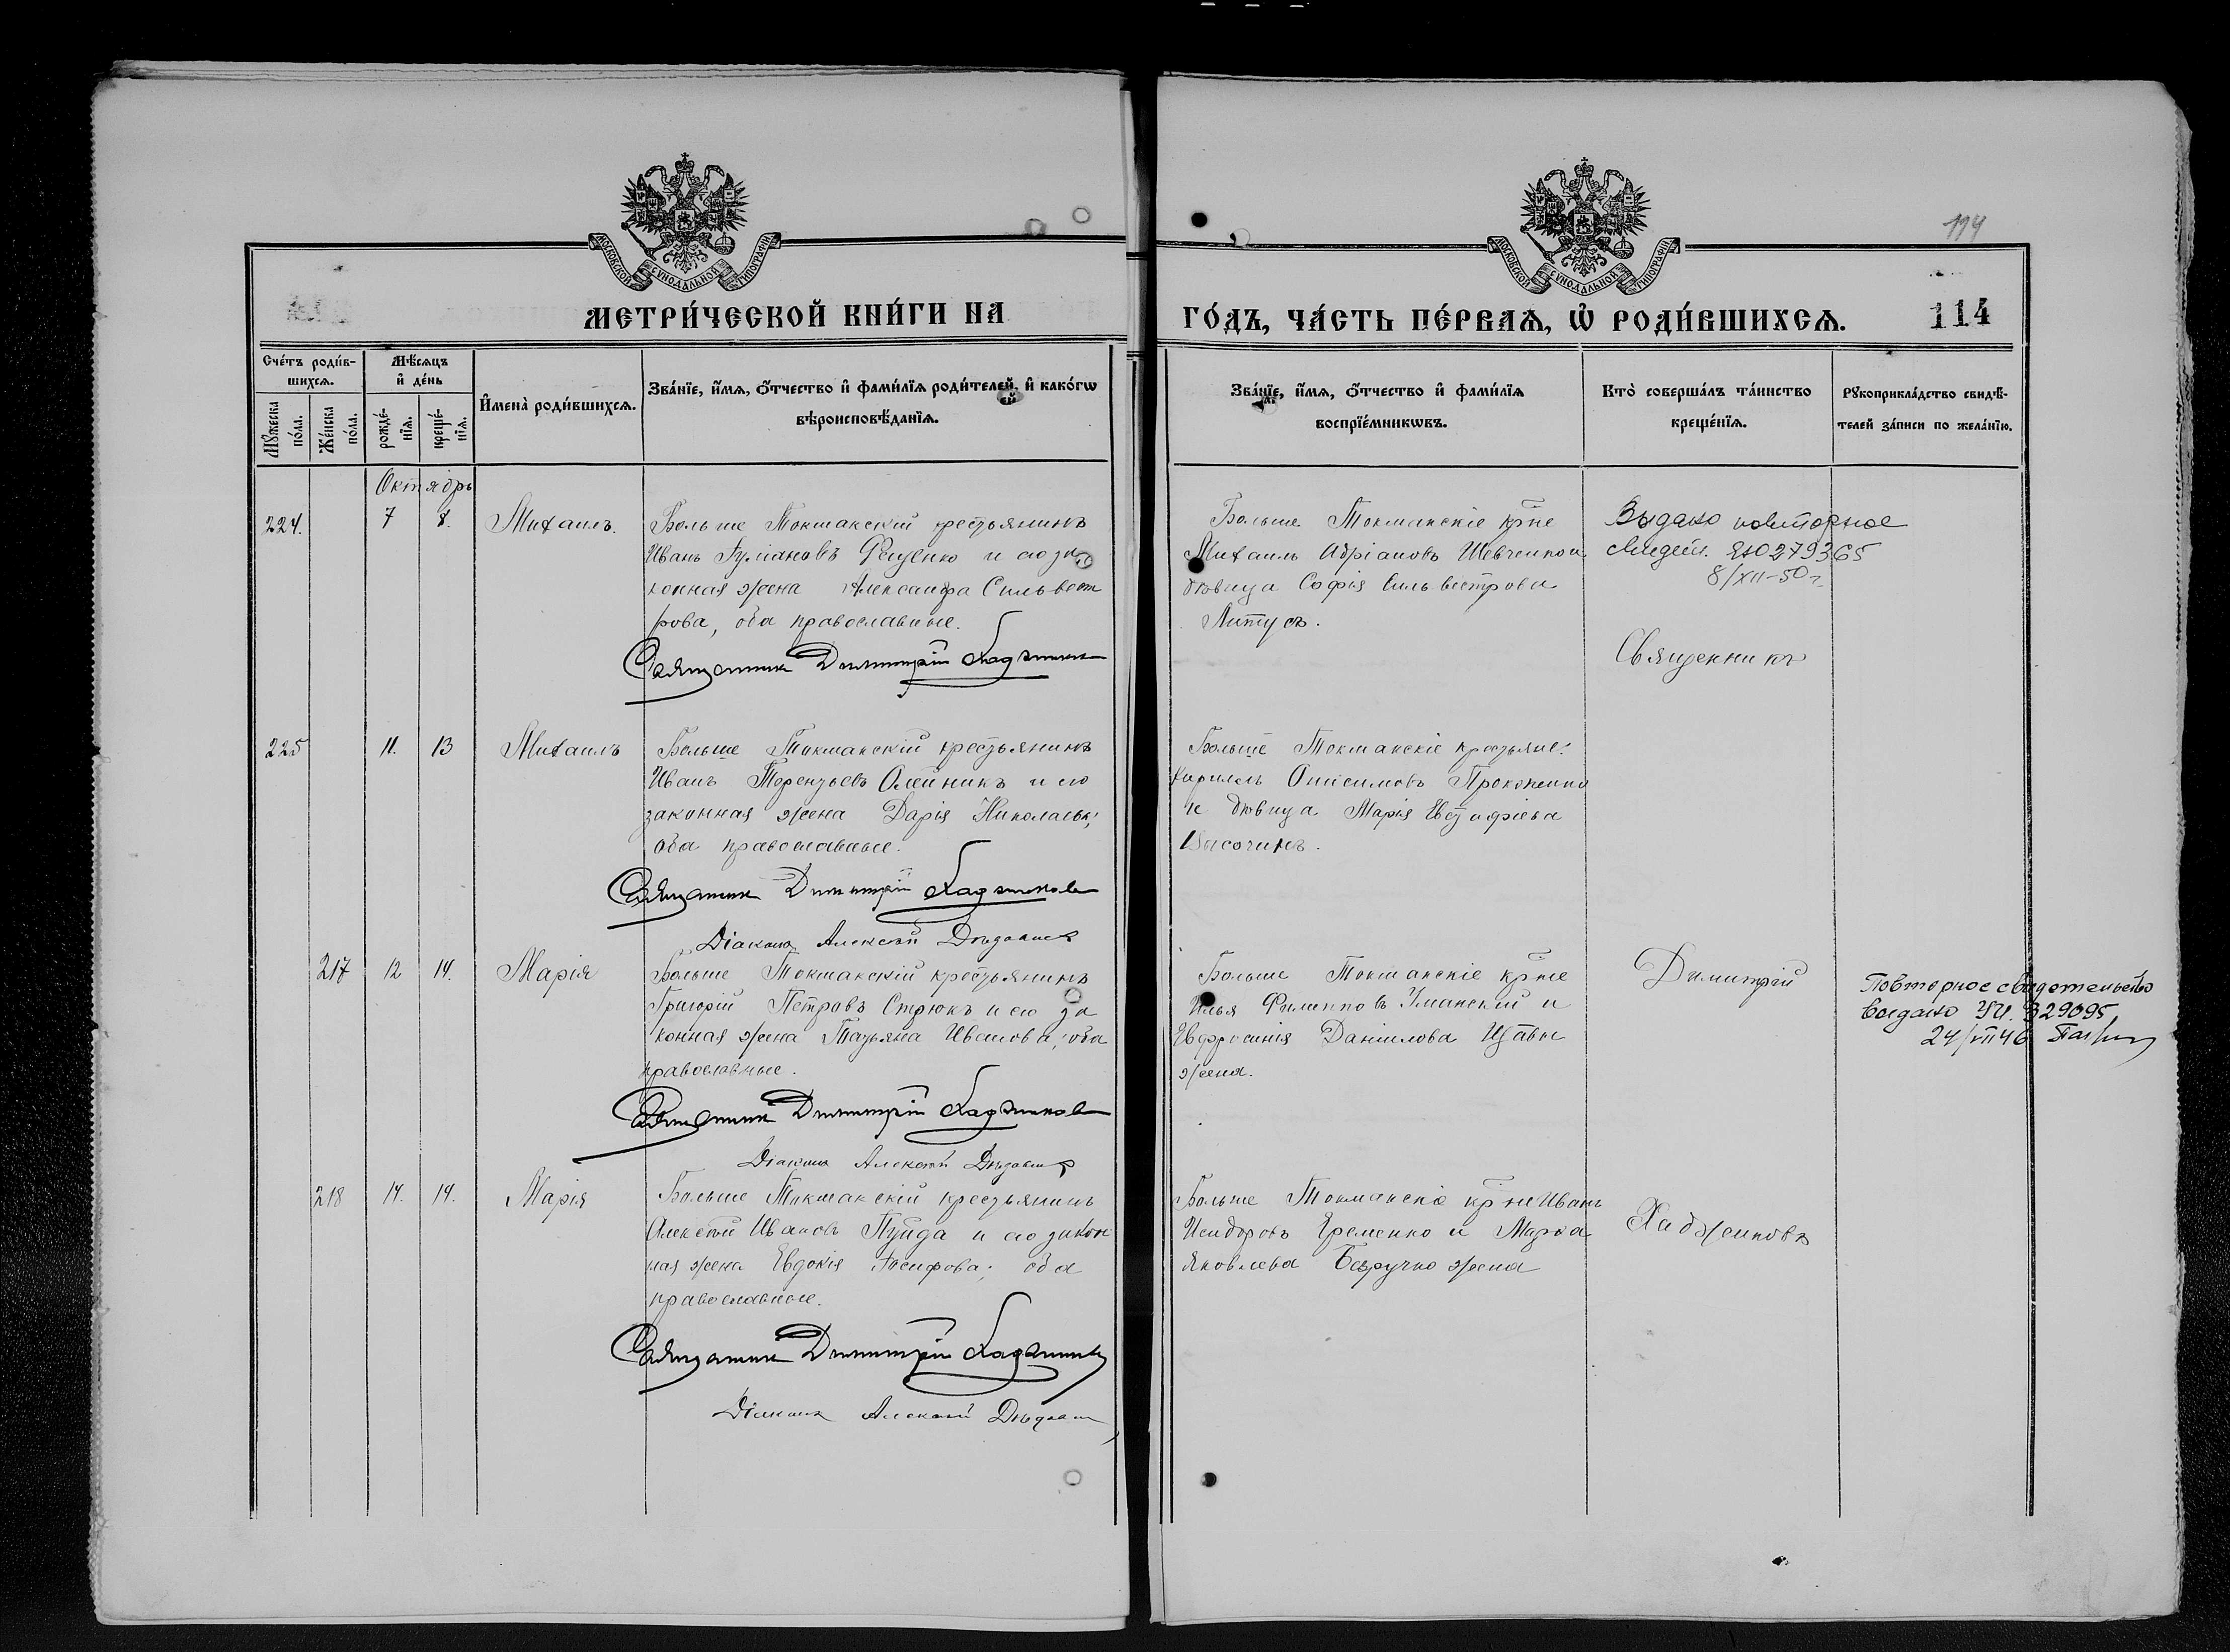 114
МОСКОВСКОЙ СѴНОДАЛЬНОЙ ТИПОГРАФІИ
МОСКОВСКОЙ СѴНОДАЛЬНОЙ ТИПОГРАФІИ
МЕТРИ́ЧЕСКОЙ КНИ́ГИ НА ГО́ДЪ, ЧА́СТЬ ПЕ́РВАѦ, Ѡ҆ РОДИ́ВШИХСѦ.
114
Сче́тъ роди́в-
шихсѧ.
Мѣ́сѧцъ
и҆ де́нь
Мꙋ́жеска
по́ла.
Же́нска
по́ла.
рожде́-
нїѧ.
креще́-
нїѧ.
И҆мена̀ роди́вшихсѧ.
Зва́нїе, и҆́мѧ, ѻ҆́тчество и҆ фами́лїѧ роди́телей, и҆ како́гѡ
вѣроисповѣ́данїѧ.
Зва́нїе, и҆́мѧ, ѻ҆́тчество и҆ фами́лїѧ
воспрїе́мникѡвъ.
Кто̀ соверша́лъ та́инство
креще́нїѧ.
Рꙋкоприкла́дство свидѣ́-
телей за́писи по жела́нїю.
Октябрь
224. 7 8. Михаилъ.
Больше Токмакскій крестьянинъ
Иванъ Фещенко и его за
конная жена Александра Сильвест
рова, оба православные.
Священникъ Димитрій Хаджиновъ
Больше Токмакскіе кр-не
Михаилъ Шевченко и
дѣвица София Сильвестрова
Выдано повторное
свидет. ЯЮ 279365
8/XII-50 г.
Священникъ
225 11. 13 Михаилъ
Больше Токмакскій крестьянинъ
Иванъ Терентьевъ Олейникъ и его
законная жена Дарія Николаева;
оба православные.
Священникъ Димитрій Хаджиновъ
Діаконъ Алексѣй
Больше Токмакскіе крестьяне:
Кириллъ Онисимовъ Прокопенко
и дѣвица Марія Евстафіева
Высочинъ.
217 12 14. Марія
Больше Токмакскій крестьянинъ
Григорій Петровъ Стрюкъ и его за
конная жена Татьяна Иванова; оба
православные.
Священникъ Димитрій Хаджиновъ
Діаконъ Алексѣй
Больше Токмакскіе кр-не
Илья Филипповъ Уманский и
Евфросинія Даниилова
жена.
Димитрій
Повторное свидетельство
выдано 329095
24/VII 46
218 14. 14. Марія
Больше Токмакскій крестьянинъ
Алексѣй Ивановъ Пуйда и его закон
ная жена Евдокія Іосифова; оба
православные.
Священникъ Димитрій Хаджиновъ
Діаконъ Алексѣй
Больше Токмакскіе кр-не Иванъ
Исидоровъ Еременко и Марѳа
Яковлева Безручко жена
Хаджиновъ